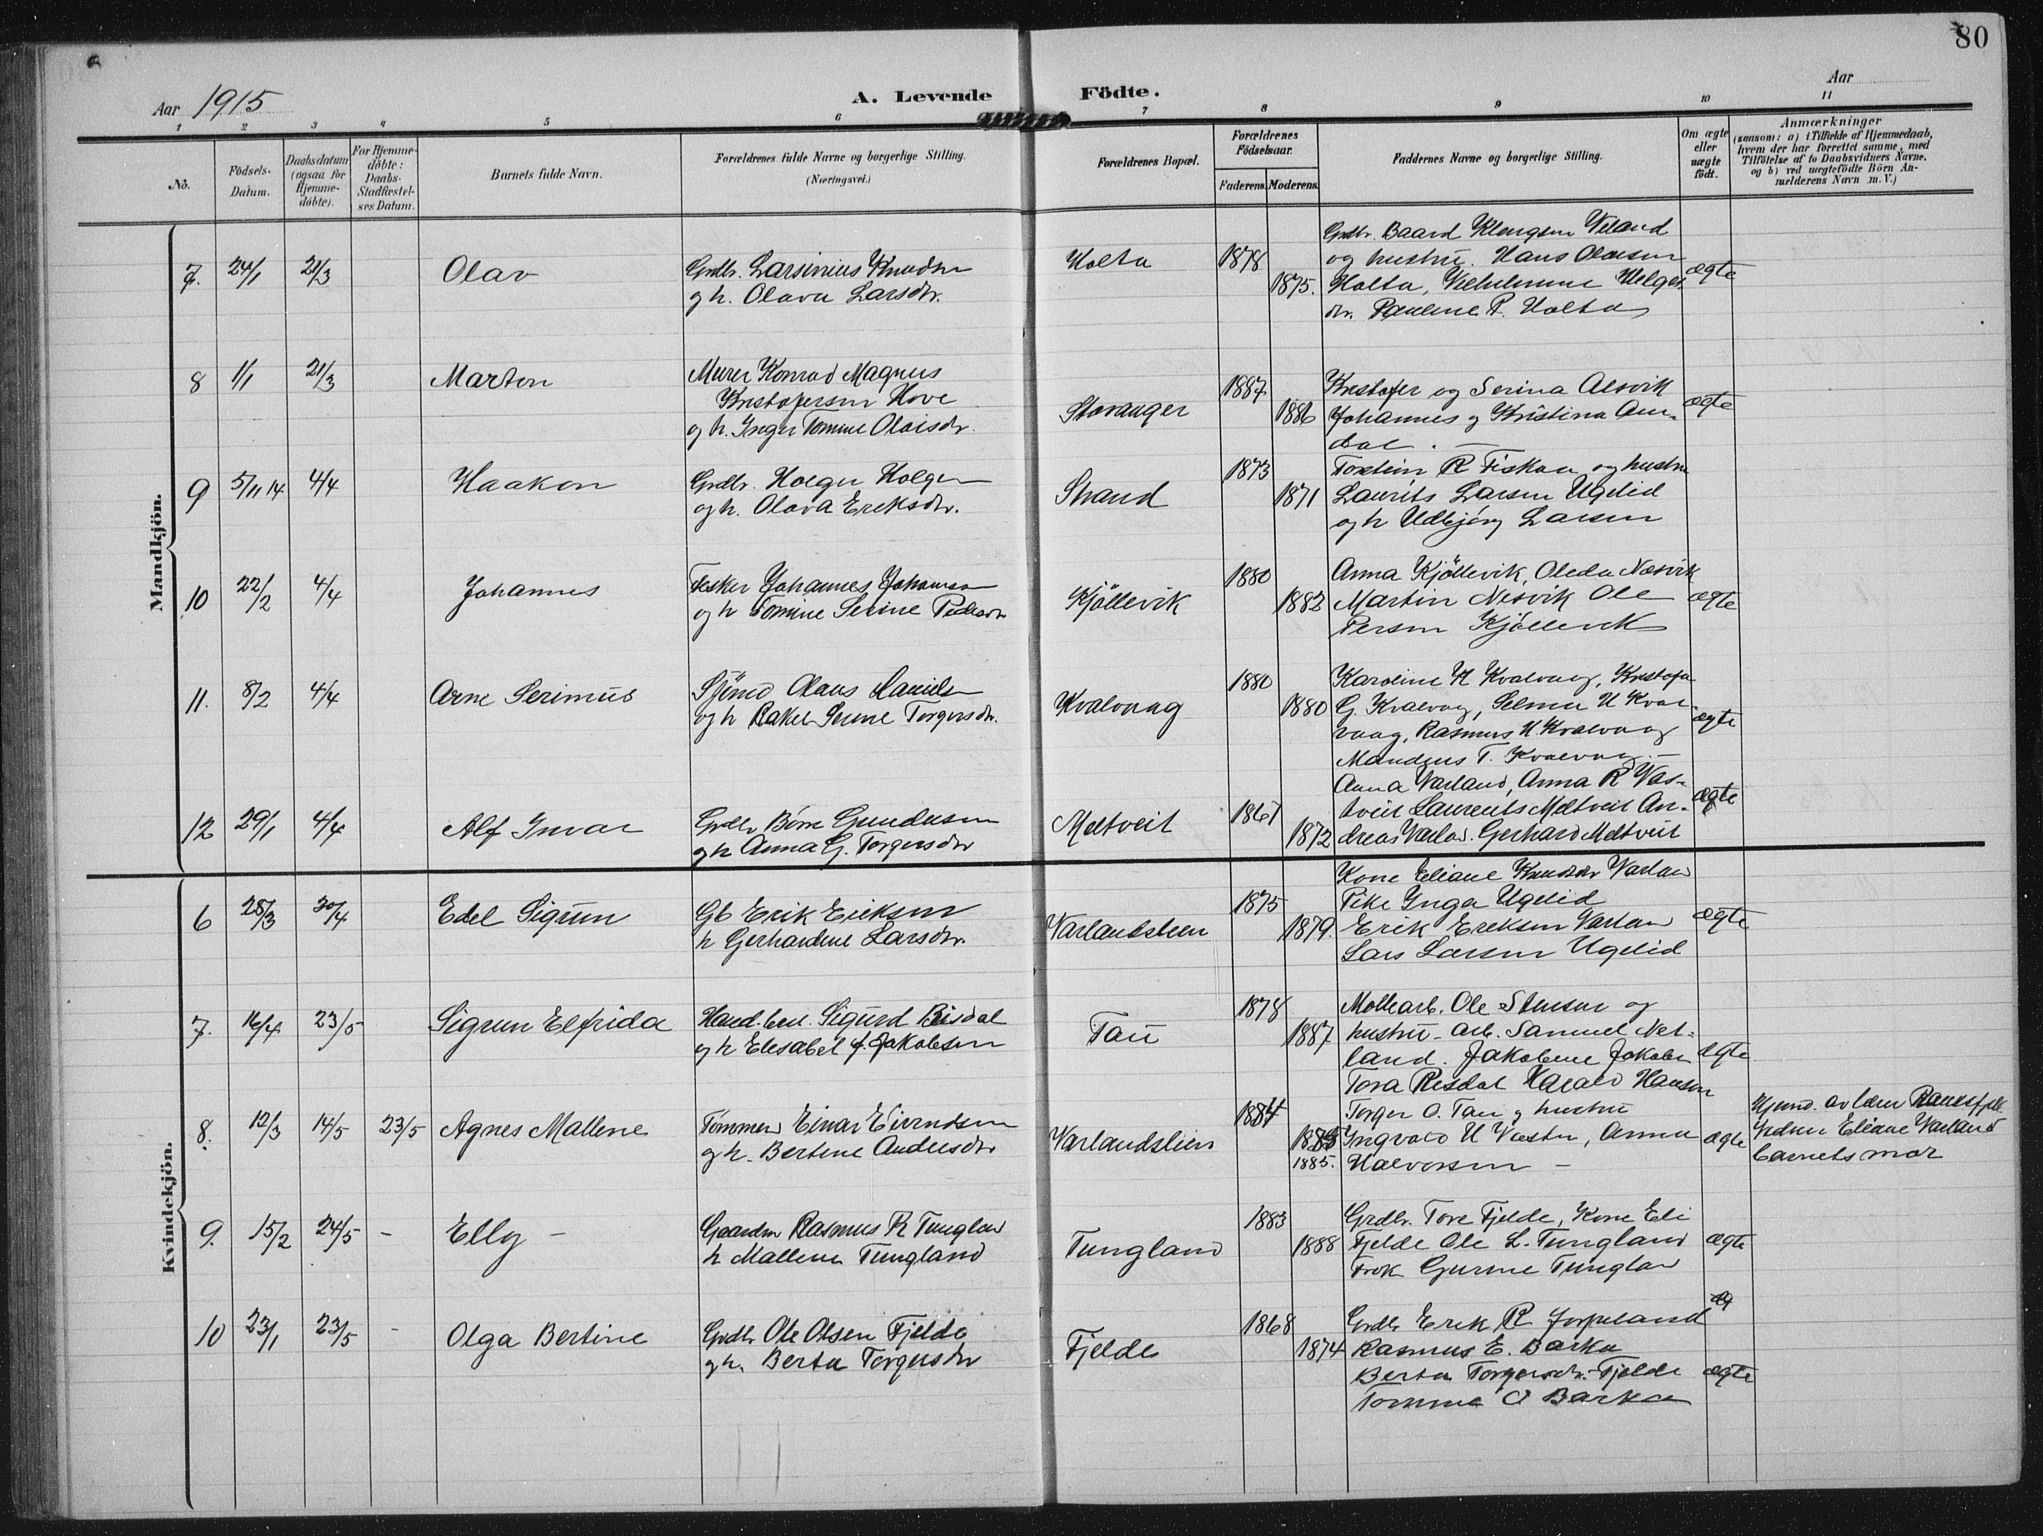 80
Aar 1915
A. Levende Födte.
Aar
1 2 3 4 5 6 7 8 9 10 11
No.
Födsels-
Datum.
Daabsdatum
(ogsaa for
Hjemme-
döbte).
For Hjemme-
döbte:
Daabs-
Stadfæstel-
ses Datum.
Barnets fulde Navn.
Forældrenes fulde Navne og borgerlige Stilling.
(Næringsvei.)
Forældrenes Bopæl.
Forældrenes
Födselsaar.
Faderens. Moderens.
Faddernes Navne og borgerlige Stilling.
Om ægte
eller
uægte
födt.
Anmærkninger
(saasom: a) i Tilfælde af Hjemmedaab,
hvem der har forrettet samme, med
Tilföielse af to Daabsvidners Navne,
og b) ved uægtefödte Börn An-
melderens Navn m. V.)
Mandkjön.
7. 24/1 21/3 Olav
Grdbr. Larsinius Knudsen
og h. Olava Larsdtr.
Holta 1878 1875.
Grdbr. Baard Klengsen Veland
og hustru. Hans Olausen
Holta, Vilhelmine Helges
dtr. Pauline R. Holta
ægte
8 1/1 21/3 Marton
Murer Konrad Magnus
Kristofersen Hove
og h. Inger Tomine Olaisdtr.
Stavanger 1887 1886
Kristofer og Serina Alsvik
Johannes og Kristina Am-
dal. —
ægte
9 5/11 14 4/4 Haakon
Grdbr. Holger Holgersen
og h. Olava Eriksdtr.
Strand 1873 1871
Torstein R Fiskaa og hustru
Laurits Larsen Ugelid
og h Udbjørg Larsen
10 22/2 4/4 Johannes
Fisker Johannes Johansen
og h Tomine Serine Pedersdtr
Kjöllevik 1880 1882
Anna Kjöllevik, Oleda Nesvik
Martin Nesvik Ole
Persen Kjöllevik
ægte
11. 8/2 4/4 Arne Serinius
Sjömd Olaus Danielsen
og h Rakel Serine Torgersdtr.
Kvalvaag 1880 1880
Karoline H Kvalvaag, Kristofer
G. Kvalvag, Selmer H Kval-
vaag, Rasmus H Kvalvaag
Mandius T. Kvalvaag. —
ægte
12 29/1 4/4 Alf Invar
Grdbr Børe Gundersen
og h Anna G. Torgersdtr
Meltveit 1867 1872
Anna Varland, Anna R Vas-
tveit Laurents Meltveit An-
dreas Varland. Gerhard Meltveit
ægte
Kvindekjön.
6 28/3 30/4 Edel Sigrun
Gb Erik Eriksen
h Gerhardine Larsdtr.
Varlandsleen 1875 1879.
Kone Eliane Knudsdtr Varland
Pike Inga Ugelid
Erik Eriksen Varland
Lars Larsen Ugelid
ægte
7. 16/4 23/5 Sigrun Elfrida
Hand.bet. Sigurd Risdal
og h Elisabet f. Jakobsen
Tau 1878 1887
Möllearb. Ole Stensen og
hustru - arb. Samuel Net-
land. Jakobine Jakobs
Tora Risdal Harald Hansen
ægte
8. 12/3 14/5 23/5 Agnes Mallene
Tömmerm Einar Eivindsen
og h. Bertine Andersdtr
Varlandsleen 1884 1885.
Torger O. Tau og hustru
Ingvald H Vestre, Anna
Halvorsen —
ægte
barnets mor
9. 15/2 24/5 - Elly -
Gaardm Rasmus R Tungland
h Mallene Tungland
Tungland 1883 1888
Grdbr. Tore Fjelde, Kone Eli
Fjelde Ole L. Tungland
Frök Gurine Tungland
ægte
10 23/1 23/5 - Olga Bertine
Grdbr Ole Olsen Fjelde
og h. Berta Torgersdtr
Fjelde 1868 1874
Grdbr Erik R Jørpeland
Rasmus E. Barka
Berta Torgersdtr. Fjelde
Tomine O Barka
ægte